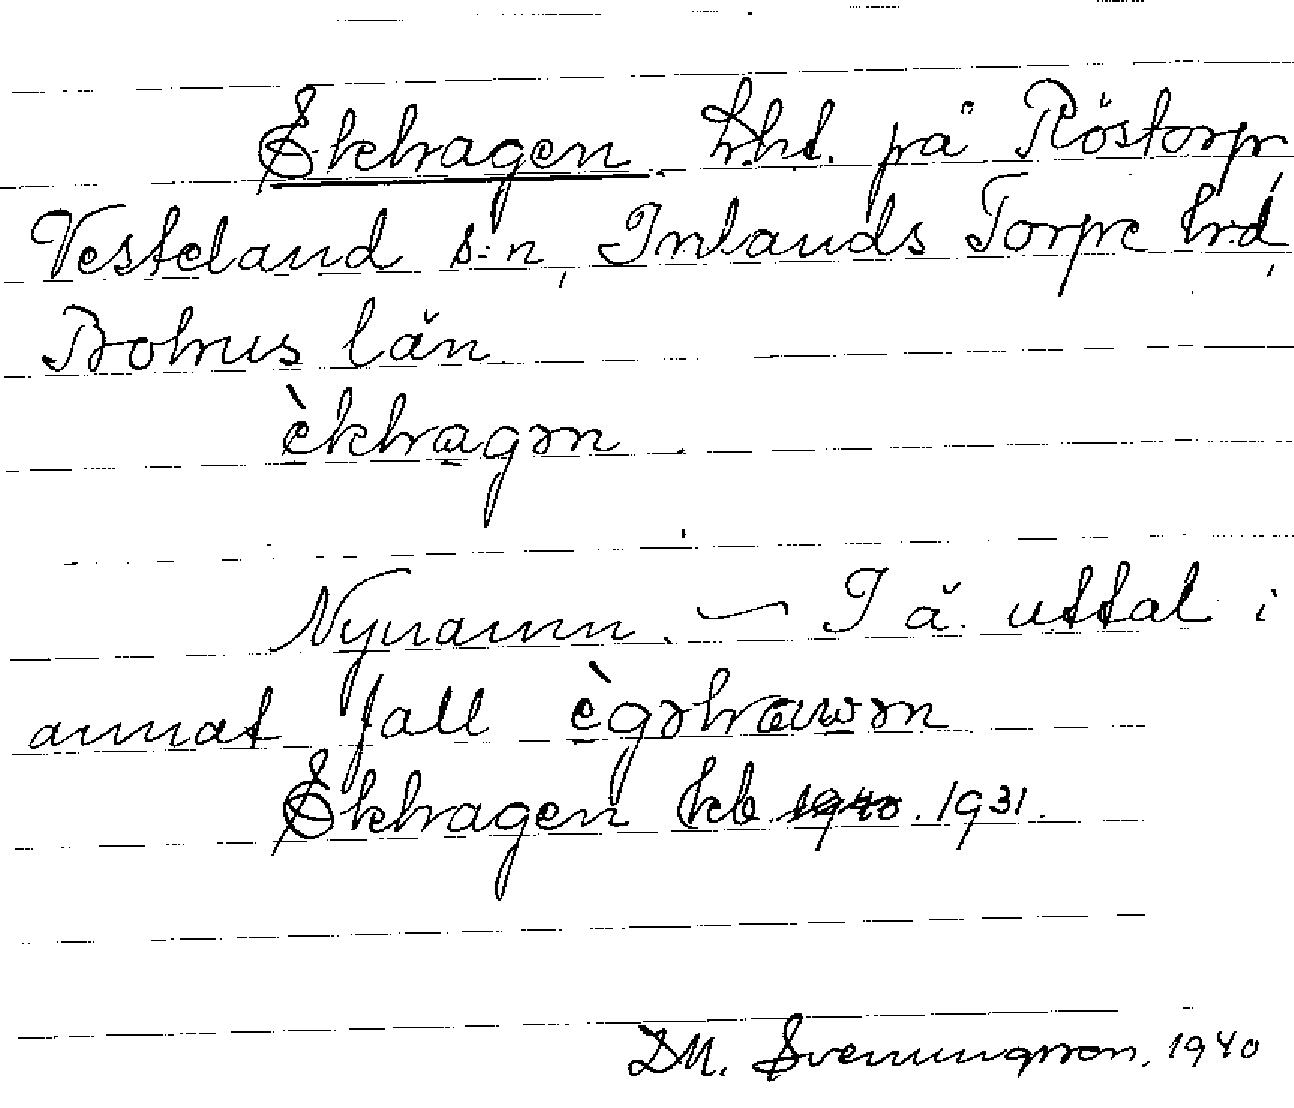 Ekhagen. lht. på Röstorp,
Vesteland s:n, Inlands Torpe hrd,
Bohus län
èkhagən.
Nynamn. – I ä. uttal i
annat fall ègəhawən
Ekhagen kb 1940. 1931.
DM. Svenningsson, 1940